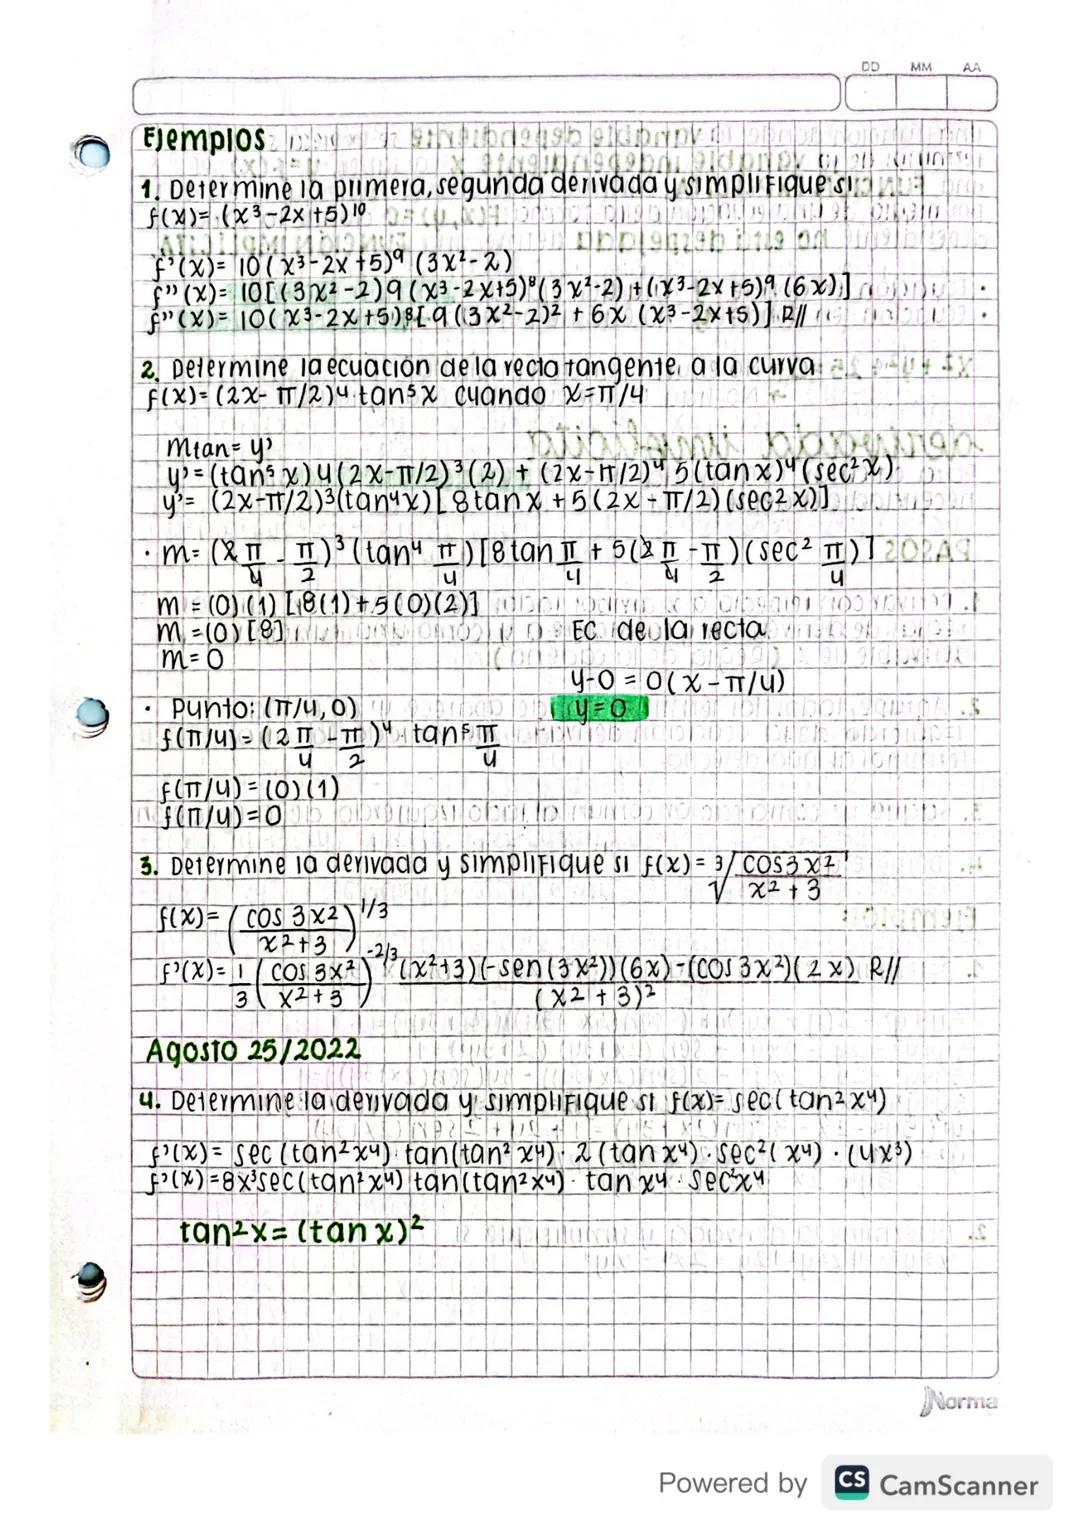 DD MM AA
Ejemplos
1. Determine la primera, segunda derivada y simplifique si
f(x)= (x³-2x+5)¹⁰
f'(x)= 10(x³-2x+5)⁹ (3x²-2)
f''(x)= 10[(3x²-2)9(x³-2x+5)⁸(3x²-2)+(x³-2x+5)⁹ (6x)]
f''(x)= 10(x³-2x+5)⁸[9(3x²-2)² + 6x (x³-2x+5)] R//
2. Determine la ecuación de la recta tangente a la curva
f(x)= (2x- π/2)⁴ tan⁵x cuando x=π/4
mtan= y'
y'= (tan⁵ x)4(2x-π/2)³(2) + (2x-π/2)⁴ 5(tan x)⁴ (sec²x)
y'= (2x-π/2)³(tan⁴x)[8tanx + 5(2x-π/2)(sec²x)]
· m= (2π/4 - π/2)³ (tan⁴ π/4)[8tan π/4 + 5(2π/4 - π/2)(sec² π/4)]
m = (0)(1)[8(1)+5(0)(2)]
m =(0)[8] Ec de la recta
m= 0
y-0 = 0(x-π/4)
· Punto: (π/4, 0) y=0
f(π/4)= (2π/4 - π/2)⁴ tan⁵ π/4
f(π/4) = (0)(1)
f(π/4)=0
3. Determine la derivada y simplifique si f(x)= ³√(cos3x²/x²+3)
f(x)= (cos 3x²/x²+3)^1/3
f'(x)= 1/3 (cos 3x²/x²+3)^-2/3 (x²+3)(-sen(3x²))(6x)-(cos 3x²)(2x)/(x²+3)² R//
Agosto 25/2022
4. Determine la derivada y simplifique si f(x)= sec(tan²x⁴)
f'(x)= sec(tan²x⁴) tan(tan²x⁴)· 2(tanx⁴)·sec²(x⁴)·(4x³)
f'(x)=8x³sec(tan²x⁴) tan(tan²x⁴)· tanx⁴·sec²x⁴
tan²x= (tan x)²
Norma
Powered by CS CamScanner